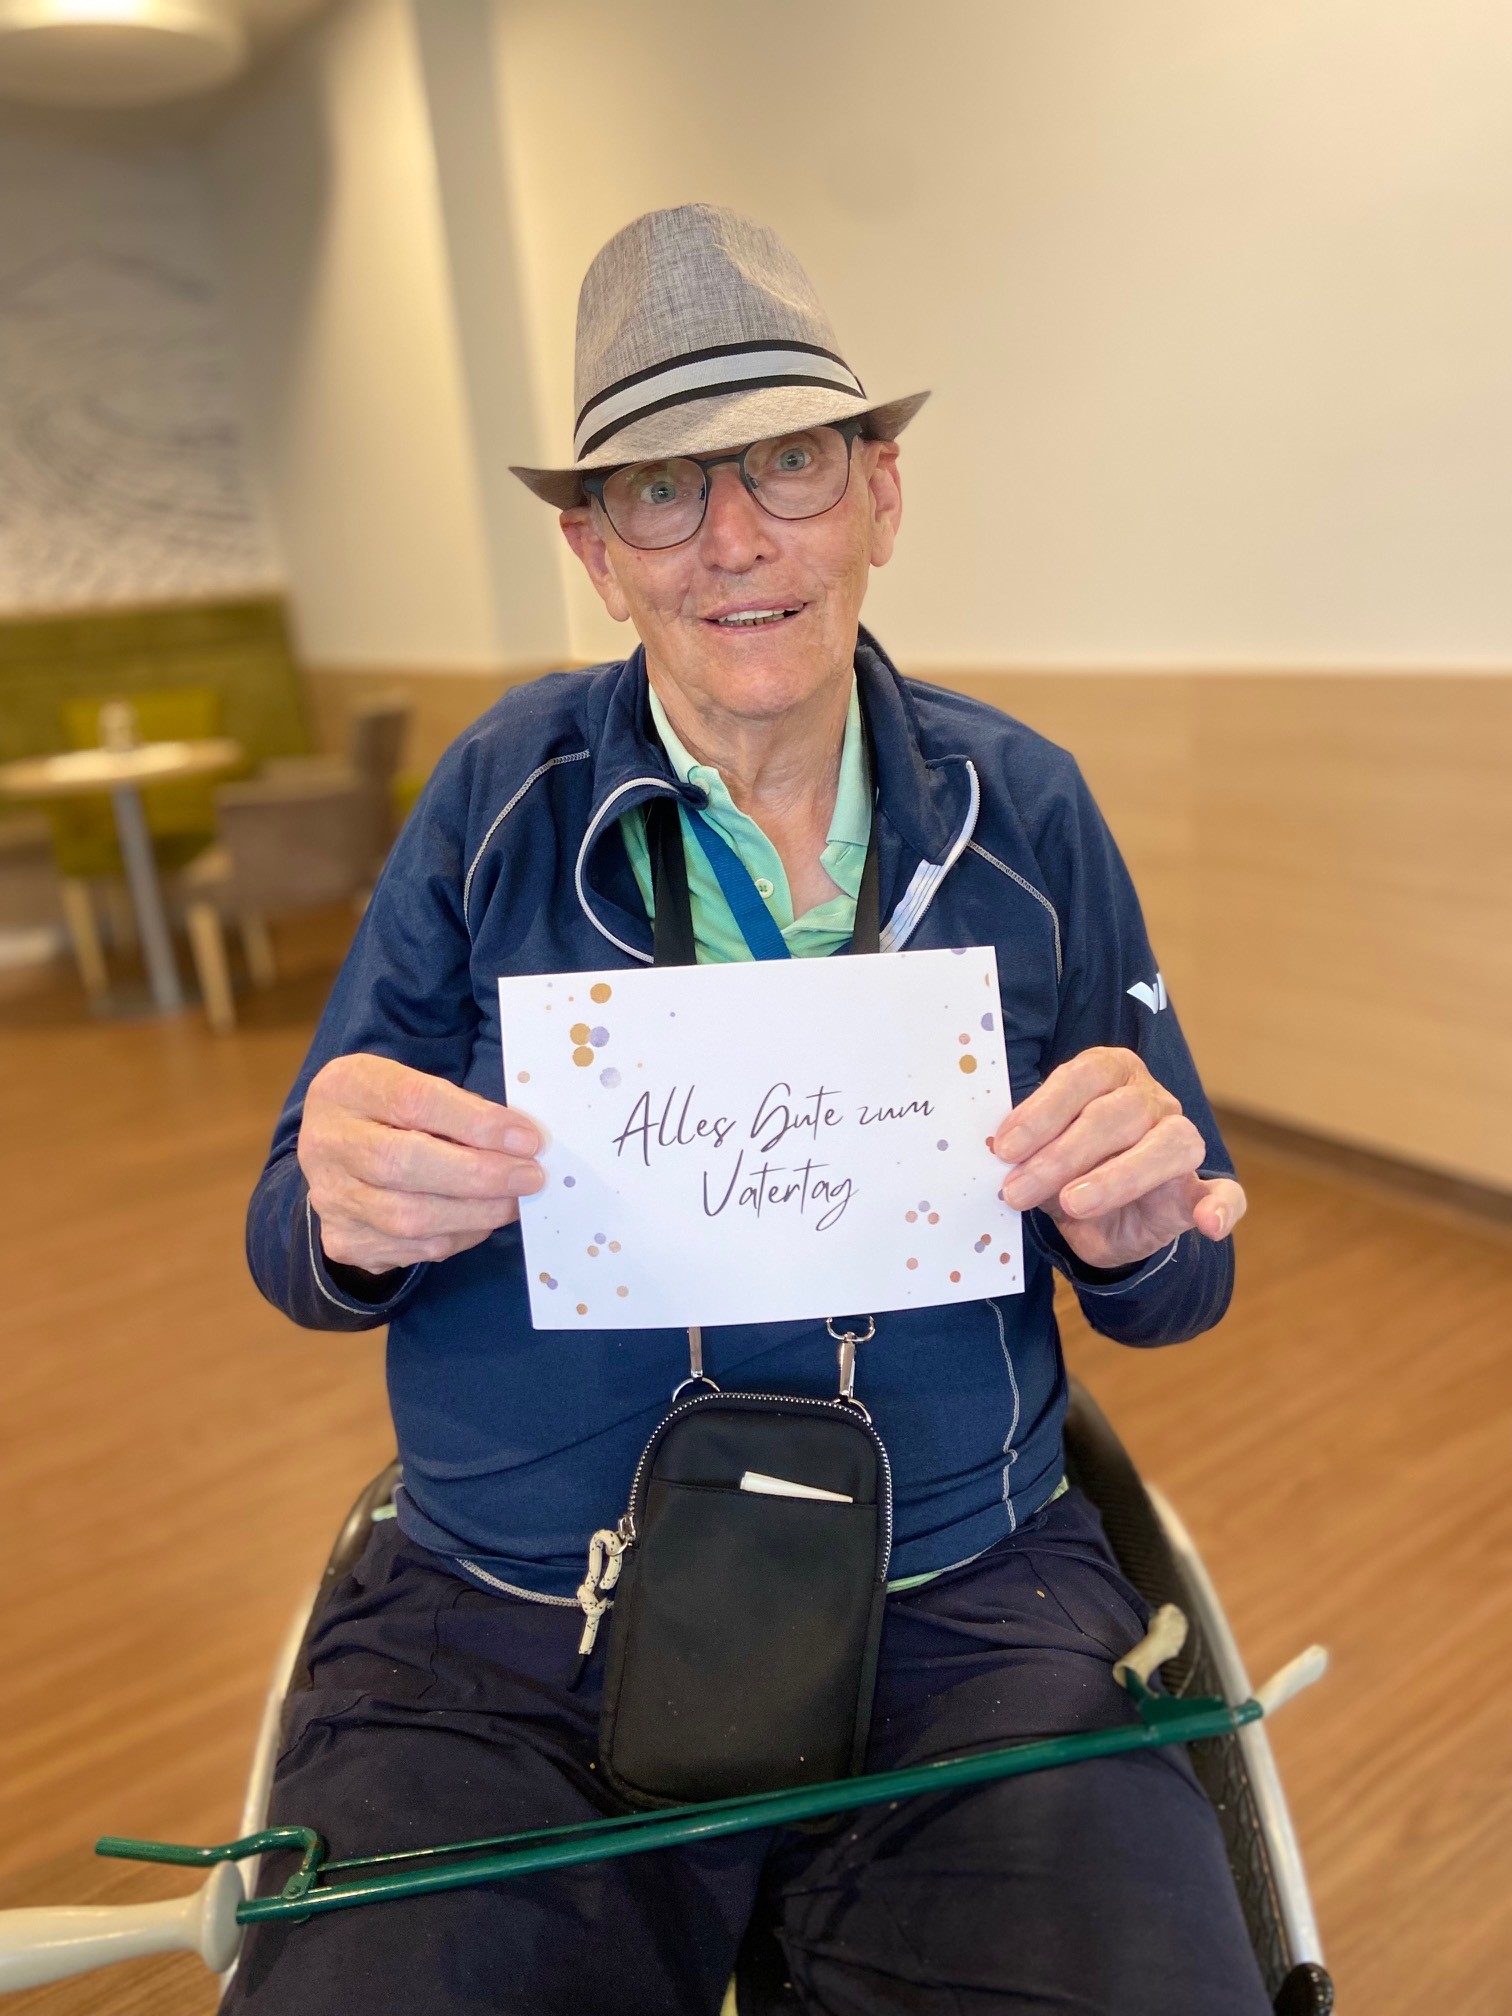 Alles Gute zum
Vatertag